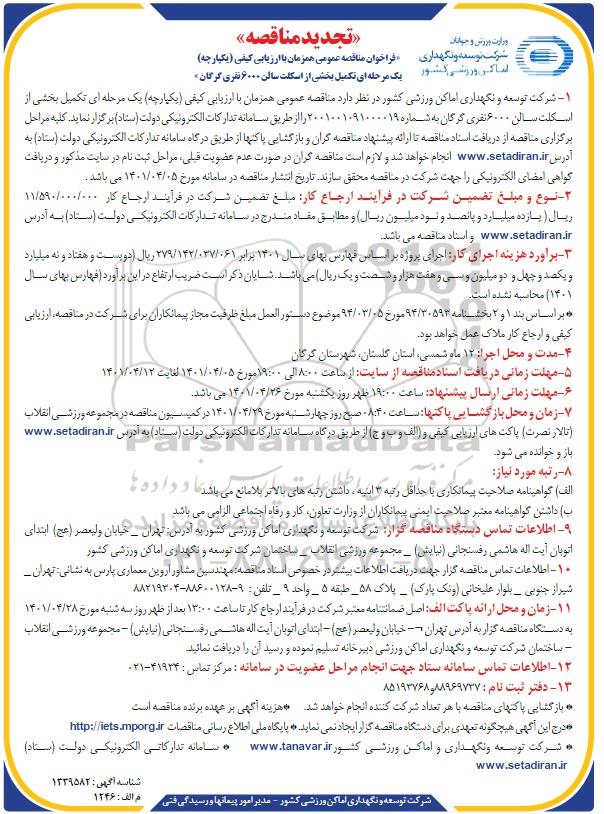 وزارت ورزش و جوانان
شرکت توسعه و نگهداری
اماکن ورزشی کشور
«تجدید مناقصه»
«فراخوان مناقصه عمومی همزمان با ارزیابی کیفی (یکپارچه)
یک مرحله ای تکمیل بخشی از اسکلت سالن ۶۰۰۰ نفری گرگان»
۱- شرکت توسعه و نگهداری اماکن ورزشی کشور در نظر دارد مناقصه عمومی همزمان با ارزیابی کیفی (یکپارچه) یک مرحله ای تکمیل بخشی از
اسکلت سالن ۶۰۰۰ نفری گرگان به شماره ۲۰۰۱۰۰۱۰۹۱۰۰۰۰۱۹ را از طریق سامانه تدارکات الکترونیکی دولت (ستاد) برگزار نماید. کلیه مراحل
برگزاری مناقصه از دریافت اسناد مناقصه تا ارائه پیشنهاد مناقصه گران و بازگشایی پاکتها از طریق درگاه سامانه تدارکات الکترونیکی دولت (ستاد) به
آدرس www.setadiran.ir انجام خواهد شد و لازم است مناقصه گران در صورت عدم عضویت قبلی، مراحل ثبت نام در سایت مذکور و دریافت
گواهی امضای الکترونیکی را جهت شرکت در مناقصه محقق سازند. تاریخ انتشار مناقصه در سامانه مورخ ۱۴۰۱/۰۴/۰۵ می باشد .
۲- نوع و مبلغ تضمین شرکت در فرآیند ارجاع کار: مبلغ تضمین شرکت در فرآیند ارجاع کار ۱۱/۵۹۰/۰۰۰/۰۰۰
ریال ( یازده میلیارد و پانصد و نود میلیون ریال) و مطابق مفاد مندرج در سامانه تدارکات الکترونیکی دولت (ستاد) به آدرس
www.setadiran.ir و اسناد مناقصه می باشد.
۳-برآورد هزینه اجرای کار: اجرای پروژه بر اساس فهارس بهای سال ۱۴۰۱ برابر ۲۷۹/۱۴۲/۰۳۷/۰۶۱ ریال (دویست و هفتاد و نه میلیارد
و یکصد و چهل و دو میلیون و سی و هفت هزار و شصت و یک ریال) می باشد. شایان ذکر است ضریب ارتفاع در این برآورد (فهارس بهای سال
۱۴۰۱) محاسبه نشده است.
* بر اساس بند ۱ و ۲ بخشنامه ۹۴/۳۰۵۹۳ مورخ ۹۴/۰۳/۰۵ موضوع دستور العمل مبلغ ظرفیت مجاز پیمانکاران برای شرکت در مناقصه، ارزیابی
کیفی و ارجاع کار ملاک عمل خواهد بود.
۴-مدت و محل اجرا: ۱۲ ماه شمسی، استان گلستان، شهرستان گرگان
۵-مهلت زمانی دریافت اسناد مناقصه از سایت: از ساعت ۸:۰۰ الی ۱۹:۰۰ مورخ ۱۴۰۱/۰۴/۰۵ لغایت ۱۴۰۱/۰۴/۱۲
۶-مهلت زمانی ارسال پیشنهاد: ساعت ۱۹:۰۰ ظهر روز یکشنبه مورخ ۱۴۰۱/۰۴/۲۶ می باشد.
۷-زمان و محل بازگشایی پاکتها: ساعت ۰۸:۴۰ صبح روز چهارشنبه مورخ ۱۴۰۱/۰۴/۲۹ در کمیسیون مناقصه در مجموعه ورزشی انقلاب
(تالار نصرت) پاکت های ارزیابی کیفی و (الف و ب و ج) از طریق درگاه سامانه تدارکات الکترونیکی دولت (ستاد) به آدرس www.setadiran.ir
باز و خوانده می شود.
۸-رتبه مورد نیاز:
الف) گواهینامه صلاحیت پیمانکاری با حداقل رتبه ۳ ابنیه ، داشتن رتبه های بالاتر بلامانع می باشد
ب) داشتن گواهینامه معتبر صلاحیت ایمنی پیمانکاران از وزارت تعاون، کار و رفاه اجتماعی الزامی می باشد
۹- اطلاعات تماس دستگاه مناقصه گزار: شرکت توسعه و نگهداری اماکن ورزشی کشور به آدرس: تهران _ خیابان ولیعصر (عج) ابتدای
اتوبان آیت اله هاشمی رفسنجانی (نیایش) _ مجموعه ورزشی انقلاب _ ساختمان شرکت توسعه و نگهداری اماکن ورزشی کشور
۱۰-اطلاعات تماس مناقصه گزار جهت دریافت اطلاعات بیشتر در خصوص اسناد مناقصه: مهندسین مشاور آروین معماری پارس به نشانی: تهران _
شیراز جنوبی _ بلوار علیخانی (ونک پارک) _ پلاک ۵۸ _ طبقه ۵ _ واحد ۹ _ تلفن : ۹-۸۸۶۰۰۱۲۸-۸۸۲۱۹۳۰۴
۱۱-زمان و محل ارائه پاکت الف: اصل ضمانتنامه معتبر شرکت در فرآیند ارجاع کار تا ساعت ۱۳:۰۰ بعد از ظهر روز سه شنبه مورخ ۱۴۰۱/۰۴/۲۸
به دستگاه مناقصه گزار به آدرس تهران ¬– خیابان ولیعصر (عج) – ابتدای اتوبان آیت اله هاشمی رفسنجانی (نیایش) – مجموعه ورزشی انقلاب
– ساختمان شرکت توسعه و نگهداری اماکن ورزشی دبیرخانه تسلیم نموده و رسید آن را دریافت نمائید.
۱۲-اطلاعات تماس سامانه ستاد جهت انجام مراحل عضویت در سامانه : مرکز تماس : ۴۱۹۳۴-۰۲۱
۱۳- دفتر ثبت نام : ۸۸۹۶۹۷۳۷ و ۸۵۱۹۳۷۶۸
* بازگشایی پاکتهای مناقصه با هر تعداد شرکت کننده انجام خواهد شد. *هزینه آگهی بر عهده برنده مناقصه است
*درج این آگهی هیچگونه تعهدی برای دستگاه مناقصه گزار ایجاد نمی نماید. * پایگاه ملی اطلاع رسانی مناقصات http://iets.mporg.ir
* شرکت توسعه ونگهداری و اماکن ورزشی کشور www.tanavar.ir * سامانه تدارکاتی الکترونیکی دولت (ستاد)
www.setadiran.ir
شناسه آگهی : ۱۳۳۹۵۸۲
م الف : ۱۲۴۶
شرکت توسعه و نگهداری اماکن ورزشی کشور - مدیر امور پیمانها و رسیدگی فنی
ParsNamadData